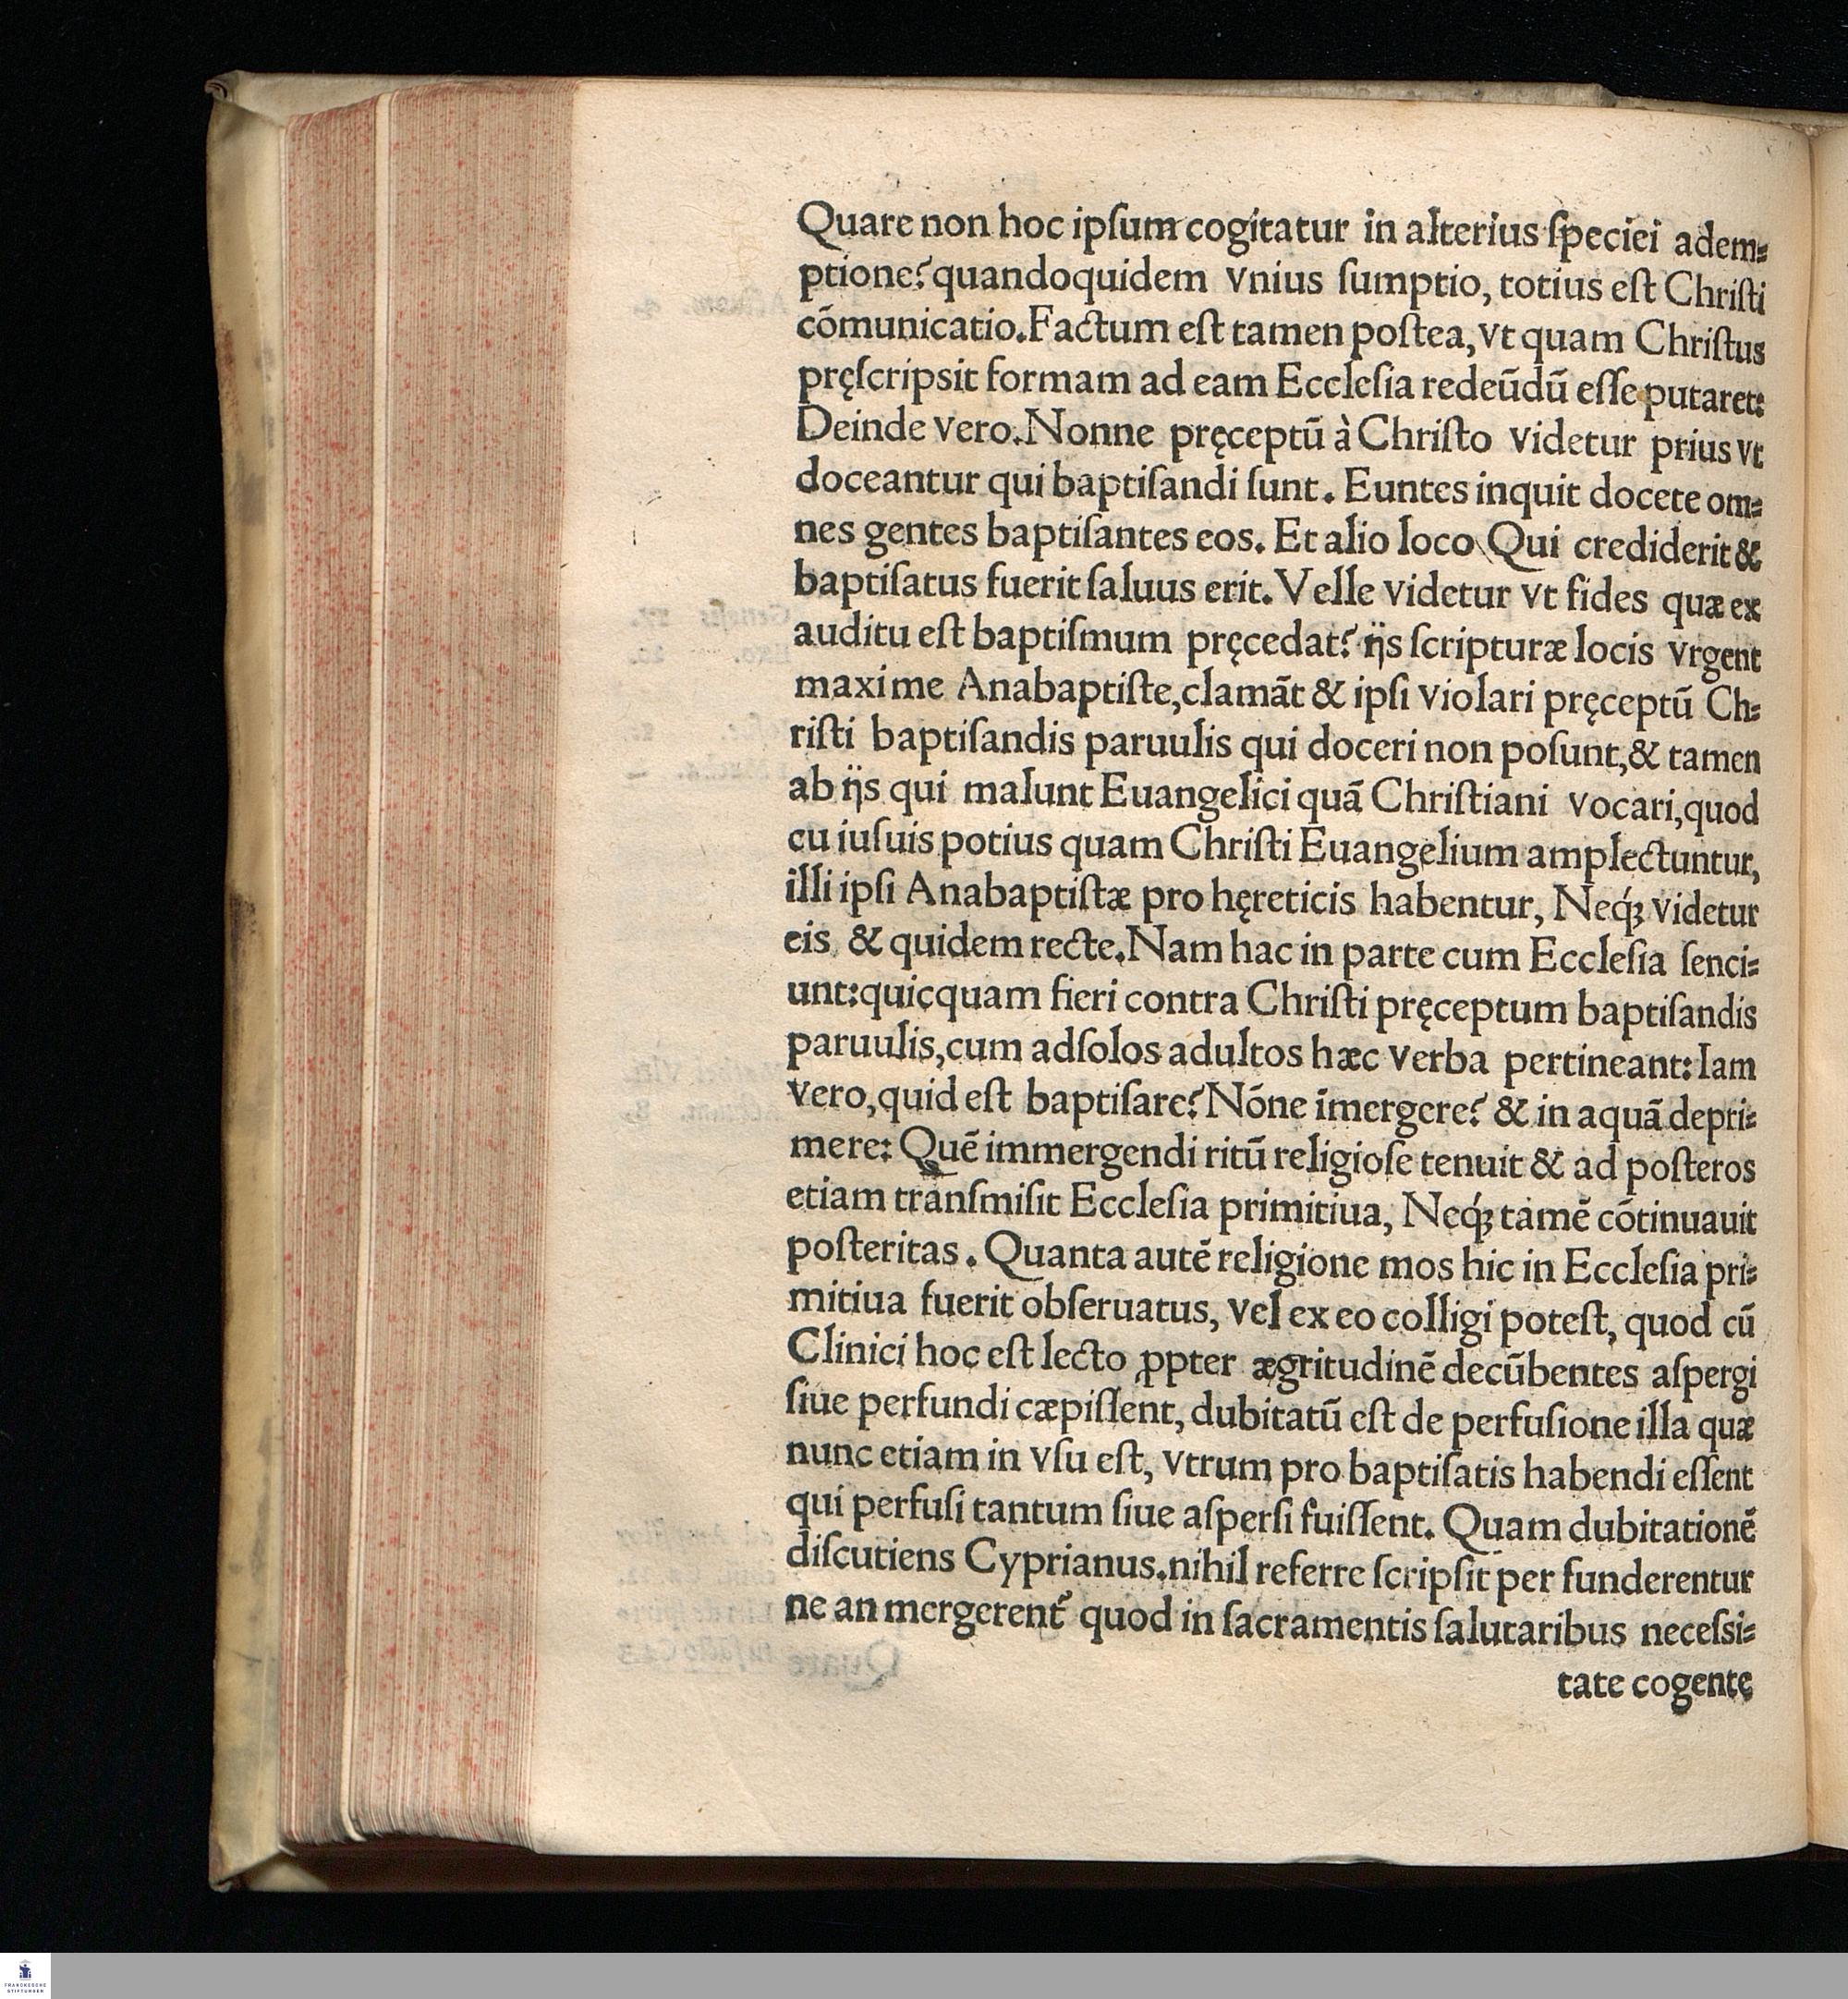 Quare non hoc ipſum cogitatur in alterius ſpeciei adem⸗
ptione? quandoquidem vnius ſumptio, totius eſt Chriſti
cōmunicatio. Factum eſt tamen poſtea, vt quam Chriſtus
pręſcripsit formam ad eam Eccleſia redeūdū eſſe putaret:
Deinde vero. Nonne pręceptū à Chriſto videtur prius vt
doceantur qui baptiſandi ſunt. Euntes inquit docete om⸗
nes gentes baptiſantes eos. Et alio loco Qui crediderit &
baptiſatus fuerit ſaluus erit. Velle videtur vt fides quæ ex
auditu eſt baptiſmum pręcedat? ijs ſcripturæ locis vrgent
maxime Anabaptiſte, clamāt & ipſi violari pręceptū Ch⸗
riſti baptiſandis paruulis qui doceri non poſunt, & tamen
ab ijs qui malunt Euangelici quā Chriſtiani vocari, quod
cu iuſuis potius quam Chriſti Euangelium amplectuntur,
illi ipſi Anabaptiſtæ pro hęreticis habentur, Neq́ꝫ videtur
eis & quidem recte. Nam hac in parte cum Eccleſia ſenci⸗
unt: quicquam fieri contra Chriſti pręceptum baptiſandis
paruulis, cum adſolos adultos hæc verba pertineant: Iam
vero, quid eſt baptiſare? Nōne īmergere? & in aquā depri⸗
mere: Quē immergendi ritū religioſe tenuit & ad poſteros
etiam tranſmiſit Eccleſia primitiua, Neq́ꝫ tamē cōtinuauit
poſteritas. Quanta autē religione mos hic in Eccleſia pri⸗
mitiua fuerit obſeruatus, vel ex eo colligi poteſt, quod cū
Clinici hoc eſt lecto ꝓpter ægritudinē decūbentes aſpergi
ſiue perfundi cæpiſſent, dubitatū eſt de perfuſione illa quæ
nunc etiam in vſu eſt, vtrum pro baptiſatis habendi eſſent
qui perfuſi tantum ſiue aſperſi fuiſſent. Quam dubitationē
diſcutiens Cyprianus. nihil referre ſcripſit per funderentur
ne an mergerent᷑ quod in ſacramentis ſalutaribus neceſsi⸗
tate cogente
FRANCKESCHE
STIFTUNGEN